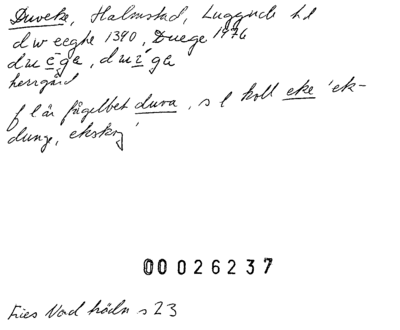 Duveke, Halmstad, Luggude hd
dw eeghe 1390, Duege 1476
herrgård
f l är fågelbet duva, s l koll eke 'ek-
dunge, ekskog'
00026237
Fries Nord hödn s 23